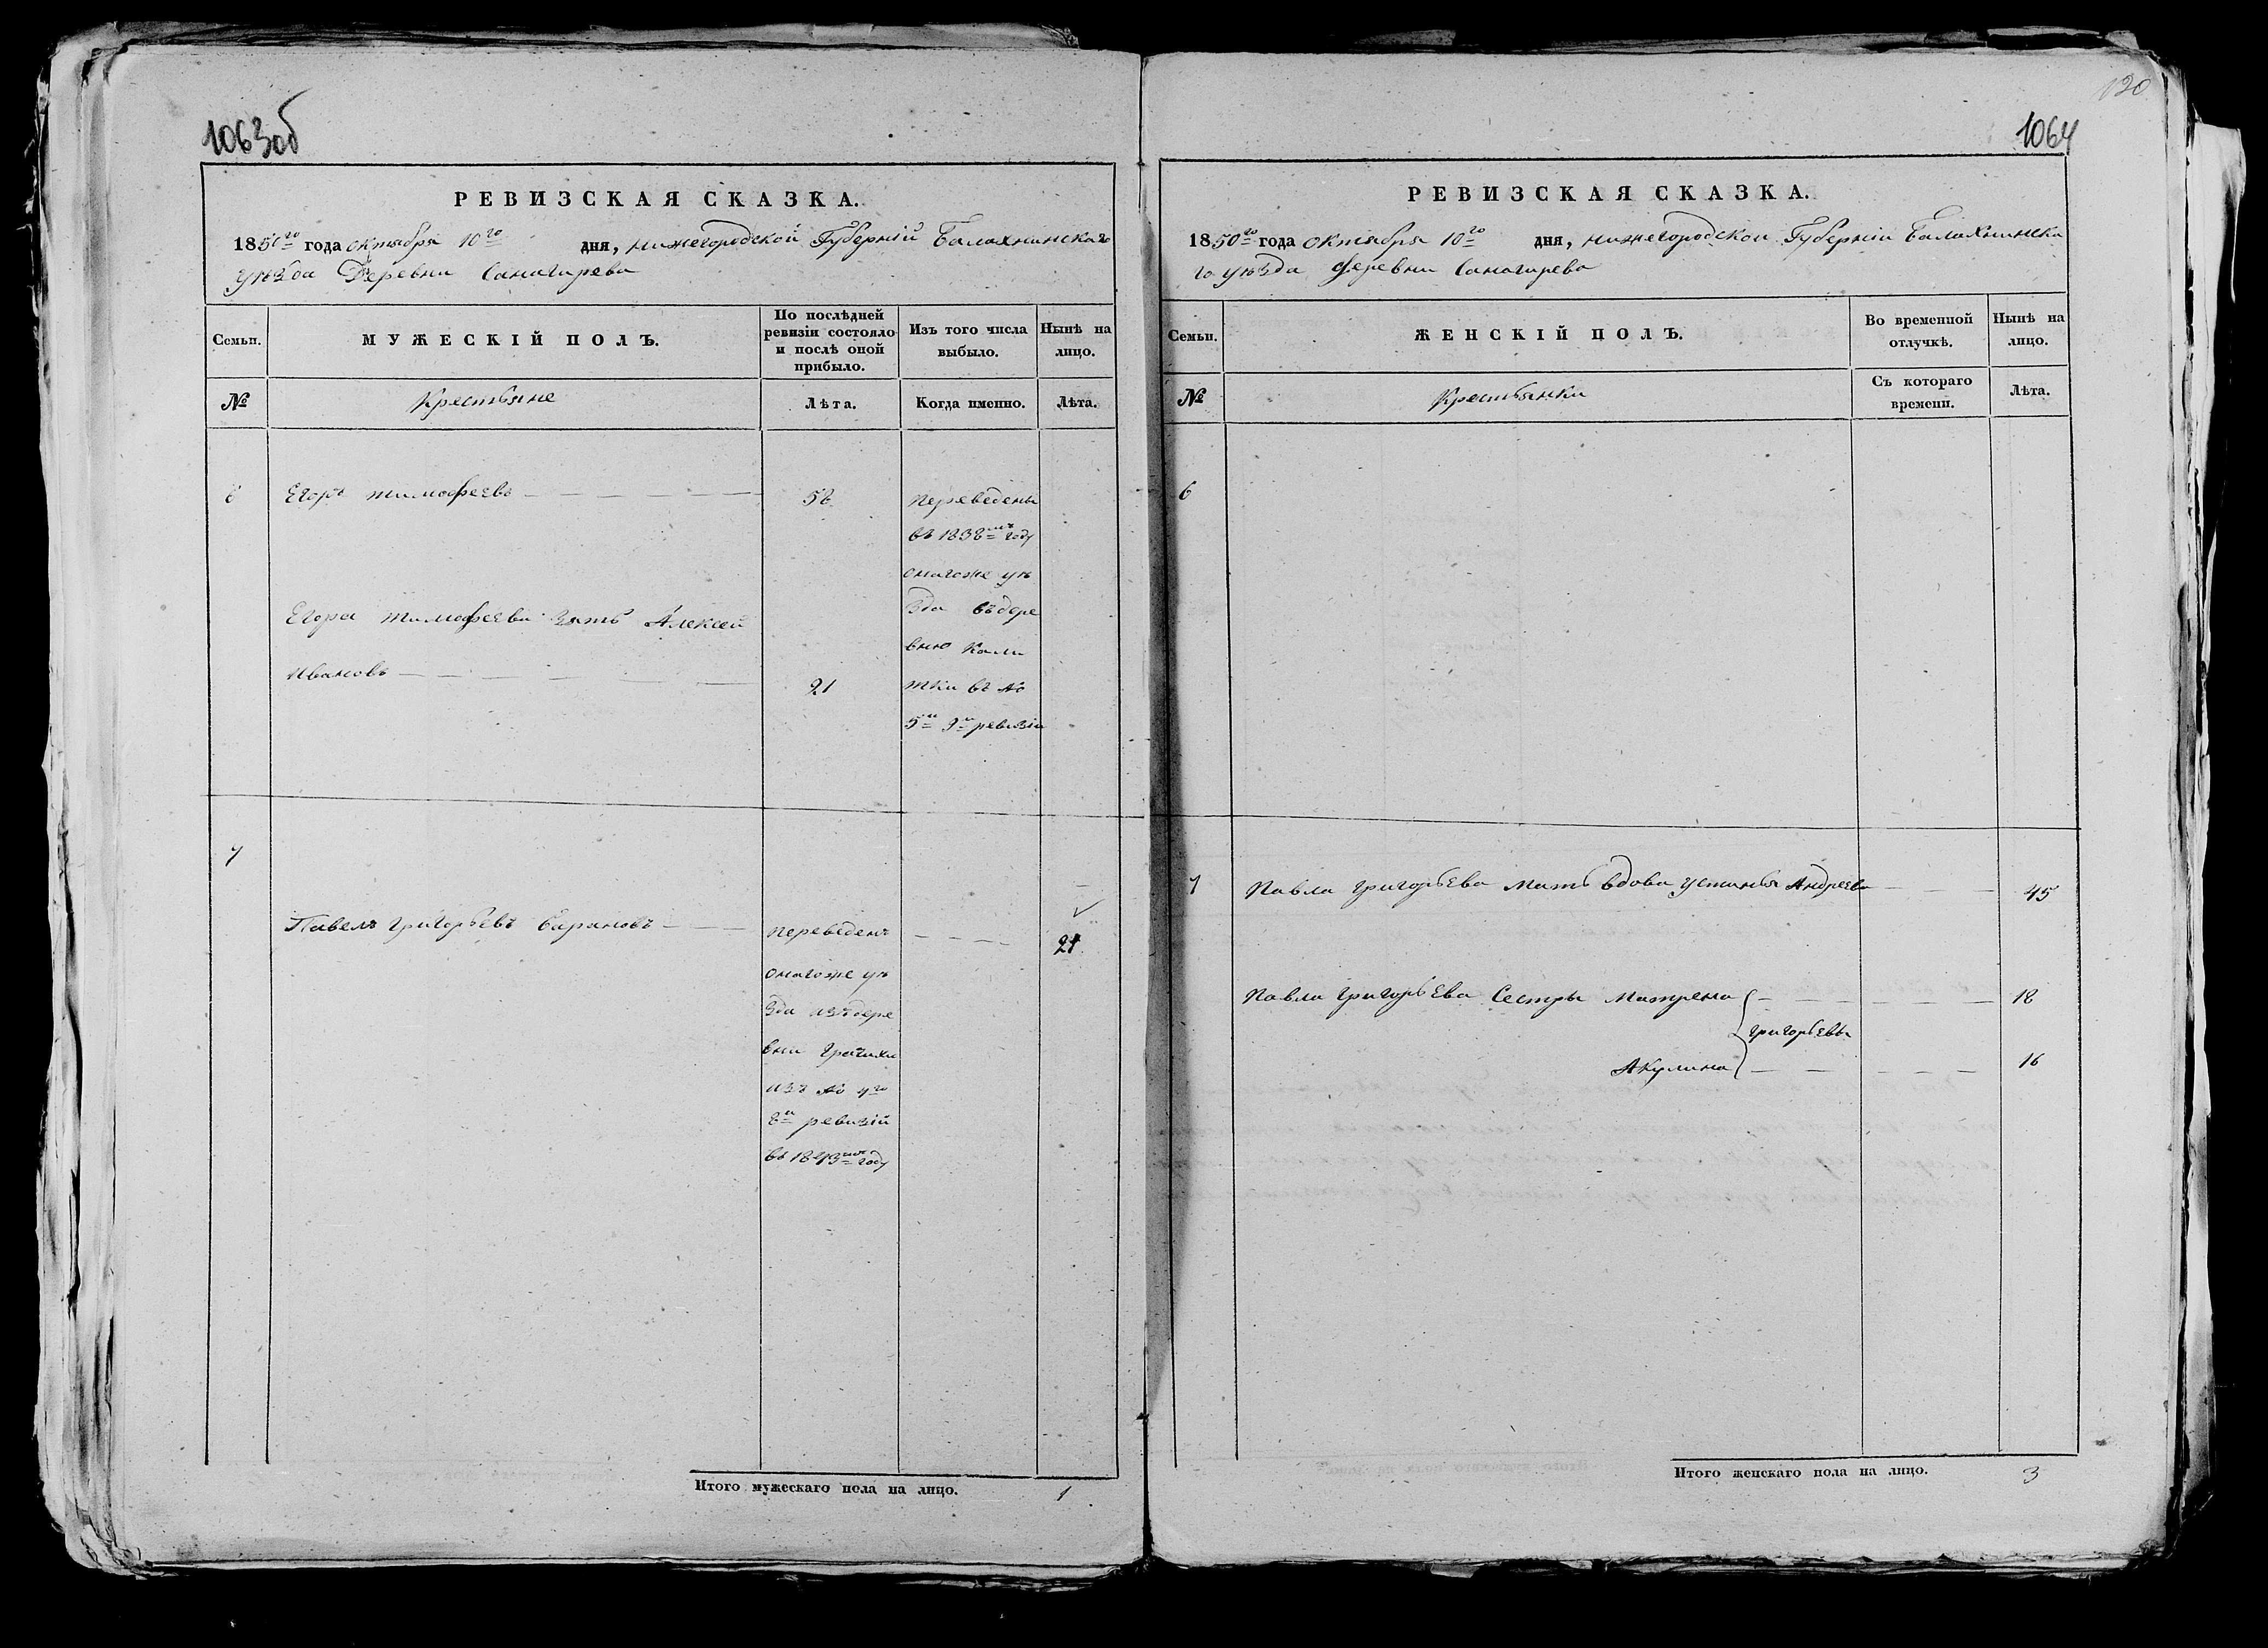 1063об
РЕВИЗСКАЯ СКАЗКА.
1850го года октября 10го дня, нижегородской Губерніи Балахнинскаго
уѣзда Деревни Санагирева
Семьи. МУЖЕСКІЙ ПОЛЪ. По послѣдней ревизіи состояло и послѣ оной прибыло. Изъ того числа выбыло. Нынѣ на лицо.
№ Крестьяне Лѣта. Когда именно. Лѣта.
6 Егоръ тимофеевъ 56 переведены
въ 1838мъ году
онагоже уѣ
Егора тимофеева зять Алексей
зда въ дере
вню Кали
ивановъ 21 тки въ №
5й 9й ревизіи
7
Павелъ григорьевъ барановъ переведенъ 21
онагоже уѣ
зда изъ дере
вни грачихи
изъ № 4го
8й ревизій
въ 1843мъ году
Итого мужескаго пола на лицо. 1
120
1064
РЕВИЗСКАЯ СКАЗКА.
1850го года октября 10го дня, нижегородской Губерніи Балахнинска
го уѣзда деревни Санагирева
Семьи. ЖЕНСКІЙ ПОЛЪ. Во временной отлучкѣ. Нынѣ на лицо.
№ Крестьянки Съ котораго времени. Лѣта.
6
7 Павла григорьева мать вдова устинья Андреева 45
Павла григорьева Сестры матрена 18
григорьевы
Акулина 16
Итого женскаго пола на лицо. 3